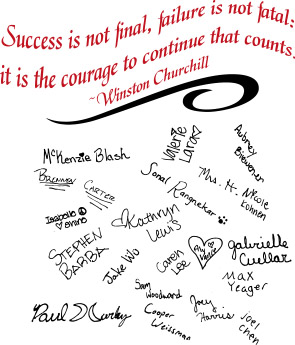 Success is not final, failure is not fatal:
it is the courage to continue that counts.
~Winston Churchill
McKenzie Blash
Valerie
Lara
Aubrey
Brennan
Carter
Sonal Rangnekar
Mrs. H. Nicole
Isabella
Kathryn
Lewis
Stephen
Barba
Jake Wo
Caren
Lee
Gabrielle
Cuellar
Max
Yeager
Sam
Woodward
Paul
Cooper
Weissman
Joey
Harris
Joel
Chen